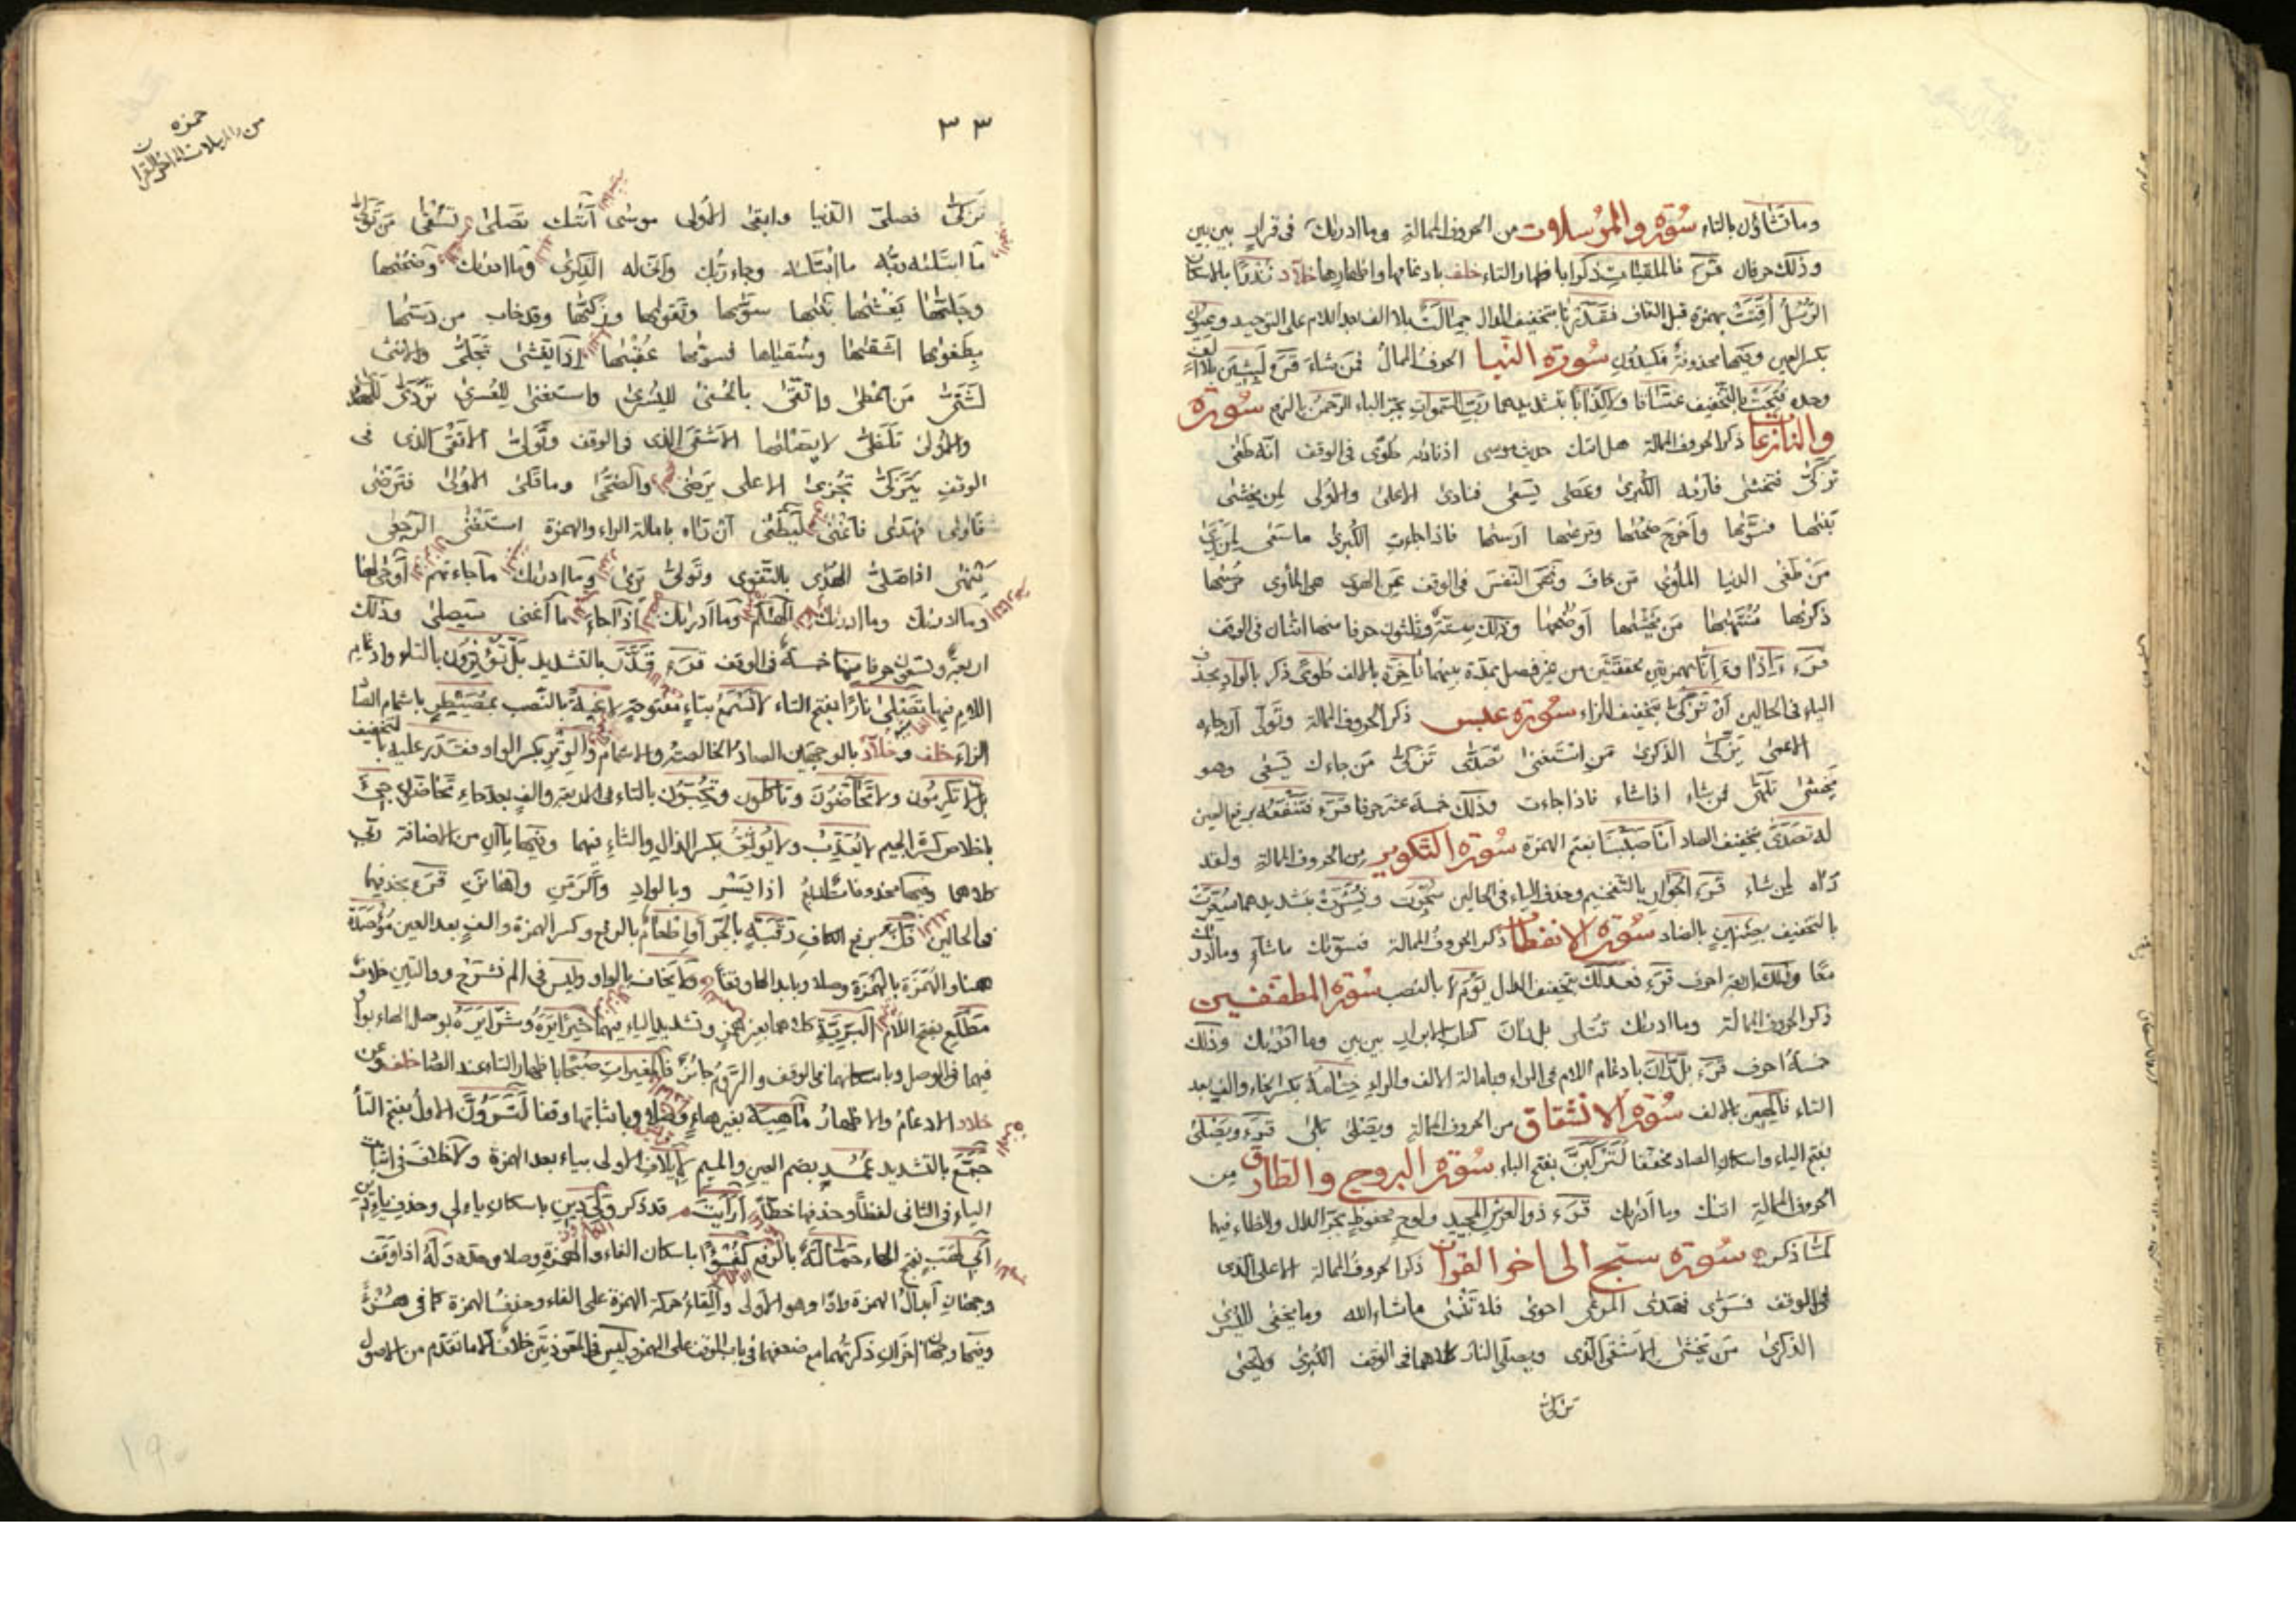 وما تشاؤن بالتاء سورة والمرسلات من الحروف الممالة وما ادريك في قرار بين بين
وذلك حرفان قرء فالملقيات ذكرا باظهار التاء خلف بادغامها واظهارها خلاد نذرا بالاسكان
الرسل اقتت بهمزة قبل القاف فقدرنا بتخفيف الدال جمالت بلا الف بعد اللام على التوحيد وعيون
بكسر العين وفيها محذوفة فكيدون سورة النبا الحرف الممال فمن شاء قرء لبثين بلا الف
وحده فتحت بالتخفيف غساقا ولا كذابا بتشديدهما رب السموات بجر الباء الرحمن بالرفع سورة
والنازعات ذكر الحروف الممالة هل اتيك حديث موسى اذ ناديه طوى في الوقف انه طغى
تزكى فتخشى فاريه الكبرى وعصى يسعى فنادى الاعلى والاولى لمن يخشى
بنيها فسويها واخرج ضحيها ومرعيها ارسيها فاذا جاءت الكبرى ما سعى لمن يرى
من طغى الدنيا الماوى من خاف ونهى النفس في الوقف عن الهوى هي الماوى مرسيها
ذكريها منتهيها من يخشيها او ضحيها وذلك ستة وثلثون حرفا منها اثنان في الوقف
قرء ءاذا وءانا بهمزتين محققتين من غير فصل بمدة بينهما ناخرة بالالف طوى ذكر بالواد بحذف
الياء في الحالين ان تزكى بتخفيف الزاء سورة عبس ذكر الحروف الممالة وتولى ان جاءه
الاعمى يزكى الذكرى من استغنى تصدى تزكى من جاءك يسعى وهو
يخشى تلهى فمن شاء اذا شاء فاذا جاءت وذلك خمسة عشر حرفا قرء فتنفعه برفع العين
له تصدى بتخفيف الصاد انا صببنا بفتح الهمزة سورة التكوير من الحروف الممالة ولقد
رآه لمن شاء قرء الجوار بالتفخيم وحذف الياء في الحالين سجرت ونشرت بتشديدهما سعرت
بالتخفيف بضنين بالضاد سورة الانفطار ذكر الحروف الممالة فسويك ما شاء وما ادريك
معا وذلك اربعة احرف قرء فعدلك بتخفيف الدال يوم لا بالنصب سورة المطففين
ذكر الحروف الممالة وما ادريك تتلى بل ران كتاب الابرار بين بين وما ادريك وذلك
خمسة احرف قرء بل ران بادغام اللام في الراء وبامالة الالف والراء ختامه بكسر الخاء والف بعد
التاء فاكهين بالالف سورة الانشقاق من الحروف الممالة ويصلى بلى قرء ويصلى
بفتح الياء واسكان الصاد مخففا لتركبن بفتح الباء سورة البروج والطارق من
الحروف الممالة اتيك وما ادريك قرء ذو العرش المجيد ولوح محفوظ بجر الدال والظاء فيهما
لما ذكر سورة سبح الى اخر القران ذكر الحروف الممالة الاعلى الذى
في الوقف فسوى فهدى المرعى احوى فلا تنسى ما شاء الله وما يخفى لليسرى
الذكرى من يخشى الاشقى الذى ويصلى النار كلاهما في الوقف الكبرى ولا يحيى
تزكى
حمزه
٣٣
تزكى فصلى الدنيا وابقى الاولى موسى اتيك تصلى تسقى من تولى
ما ابتليه ربه ما ابتليه وجاء ربك وانى له الذكرى وما ادريك وضحيها
وجليها يغشيها بنيها سويها وتقويها وزكيها وقد خاب من دسيها
بطغويها اشقيها وسقياها فسويها عقبيها اذا يغشى تجلى والانثى
لشتى من اعطى واتقى بالحسنى لليسرى واستغنى للعسرى تردى للهدى
والاولى تلظى لا يصليها الاشقى الذى في الوقف وتولى الاتقى الذى في
الوقف يتزكى تجزى الاعلى يرضى والضحى وما قلى الاولى فترضى
فاوى فهدى فاغنى ليطغى ان رآه بامالة الراء والهمزة استغنى الرجعى
ينهى اذا صلى الهدى بالتقوى وتولى يرى وما ادريك ما جاءتهم اوحى لها
وما ادريك وما ادريك الهيكم وما ادريك اذا جاء ما اغنى سيصلى وذلك
اربعة وتسعون حرفا منها خمسة في الوقف قرء قدر بالتشديد بل تؤثرون بالتاء وادغام
اللام فيها تصلى نارا بفتح التاء لا تسمع بتاء مفتوحة لاغية بالنصب بمصيطر باشمام الصاد
الزاء خلف وخلاد بالوجهين الصاد الخالصة والاشمام والوتر بكسر الواو فقدر عليه بالتخفيف
بل لا تكرمون ولا تحاضون وتاكلون وتحبون بالتاء في الاربعة والف بعد حاء تحاضون جىء
باخلاص كسرة الجيم لا يعذب ولا يوثق بكسر الذال والثاء فيهما وفيها ياآن من الاضافة ربى
كلاهما وفيها محذوفات اذا يسر وبالواد واكرمن واهانن قرء بحذفها
في الحالين فك برفع الكاف رقبة بالجر او اطعام بالرفع وكسر الهمزة والف بعد العين مؤصدة
هنا والهمزة بالهمزة وصلا وبابدالها وقفا ولا يخاف بالواو وليس في الم نشرح ووالتين خلاف
مطلع بفتح اللام البرية كلاهما بغير همز وتشديد الياء فيهما خيرا يره وشرا يره بوصل الهاء بواو
فيهما في الوصل وباسكانهما في الوقف والروم جائز فالمغيرات صبحا باظهار التاء عند الصاد خلف وعن
خلاد الادغام والاظهار ماهيه بغير هاء وصلا وباثباتها وقفا لترون الاول بفتح التاء
جمع بالتشديد عمد بضم العين والميم لايلاف الاولى بياء بعد الهمزة ولا خلاف في اثبات
الياء في الثانى لفظا وحذفها خطا ارايت قد ذكر ولى دين باسكان ياء لى وحذف ياء دين
ابى لهب بفتح الهاء حمالة بالرفع كفؤا باسكان الفاء والهمزة وصلا وحده وله اذا وقف
وجهان ابدال الهمزة واوا وهو الاولى والقاء حركة الهمزة على الفاء وحذف الهمزة كما في هزؤا
وفيها وجهان اخران ذكرتهما مع ضعفهما في باب الوقف على الهمز وليس في المعوذتين خلاف الا ما تقدم من الاصول
١٩٠